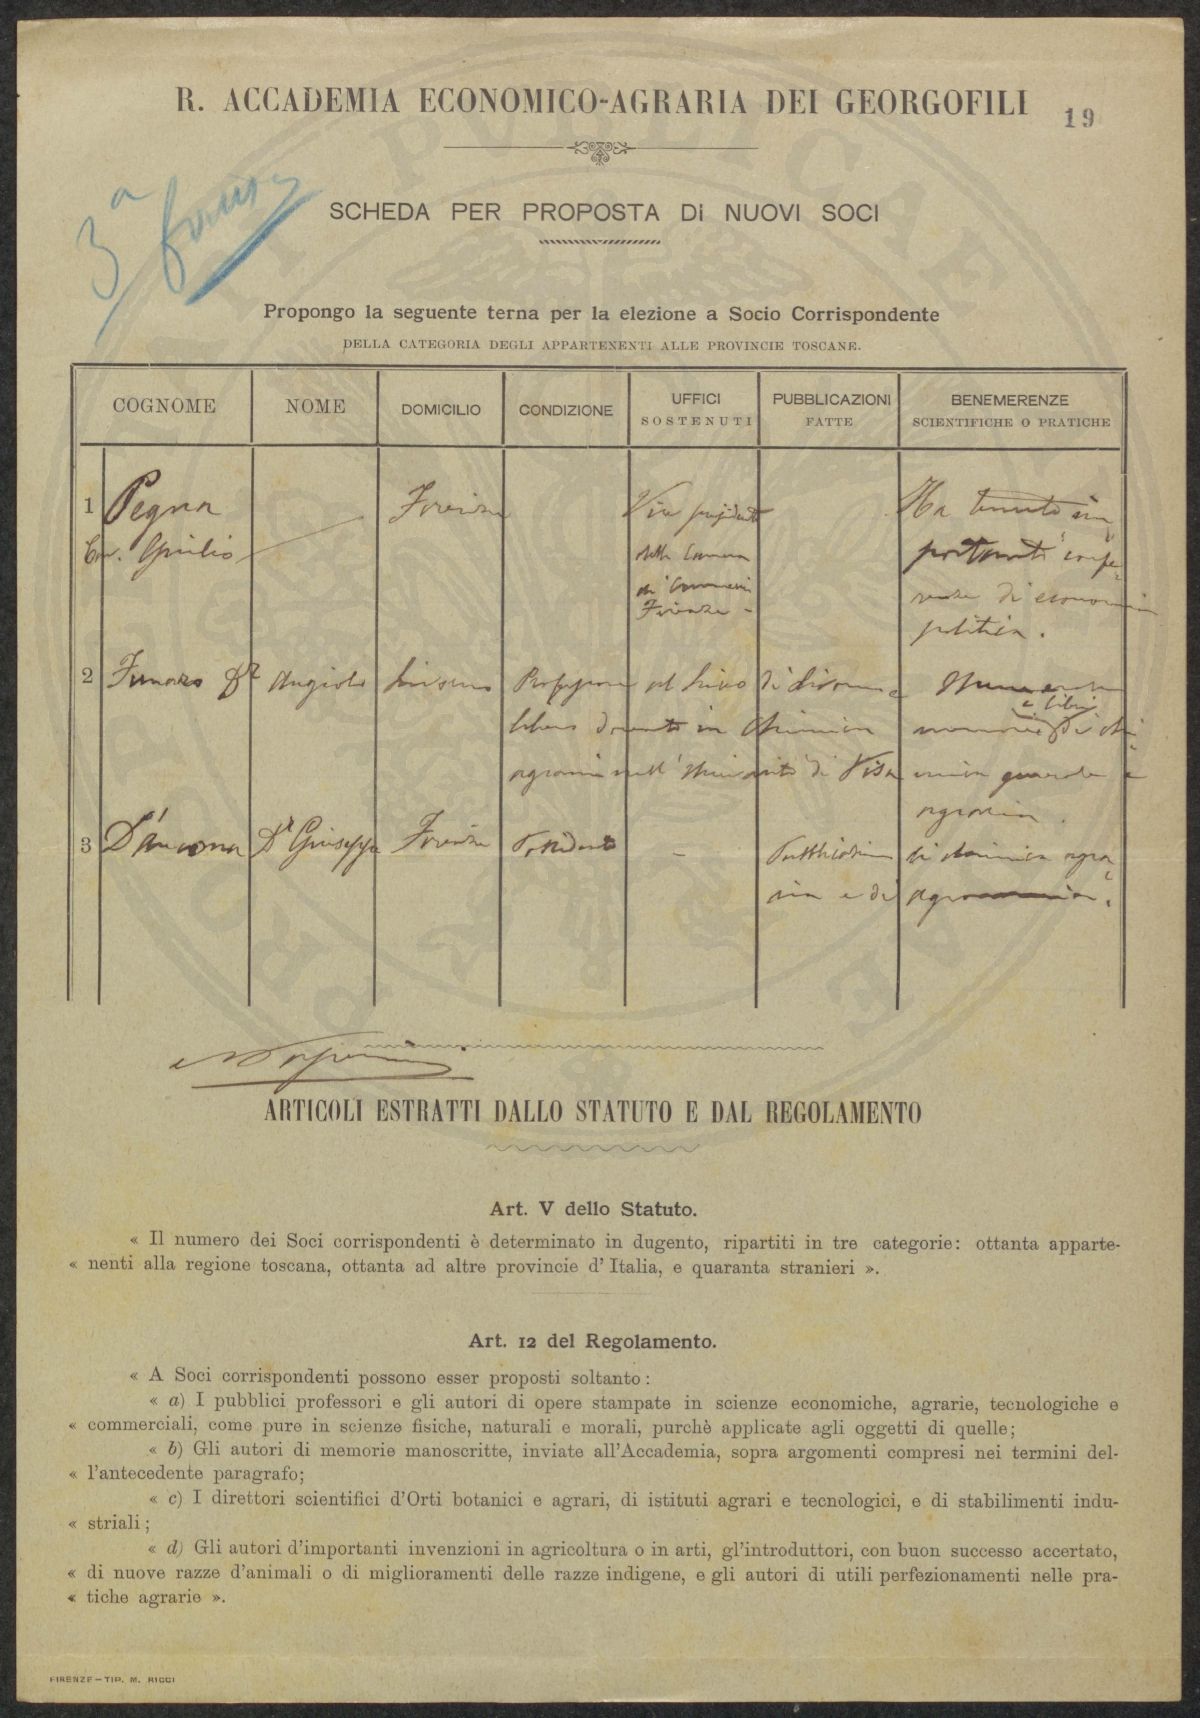 R. ACCADEMIA ECONOMICO-AGRARIA DEI GEORGOFILI
19
3ª
SCHEDA PER PROPOSTA DI NUOVI SOCI
Propongo la seguente terna per la elezione a Socio Corrispondente
DELLA CATEGORIA DEGLI APPARTENENTI ALLE PROVINCIE TOSCANE.
COGNOME NOME DOMICILIO CONDIZIONE UFFICI SOSTENUTI PUBBLICAZIONI FATTE BENEMERENZE SCIENTIFICHE O PRATICHE
1 Pegna Firenze Vice presidente Ha tenuto im
Cav. Giulio della Camera portanti confe
di Commercio renze di economia
Firenze - politica.
2 Funaro Dr Angiolo Livorno Professore al Liceo di Livorno e
e libri
libero docente in Chimica memorie di chi
agraria nell'Università di Pisa mica generale e
agraria.
3 D'Ancona Dr Giuseppe Firenze Possidente - Pubblicazioni di chimica agra
ria e di
ARTICOLI ESTRATTI DALLO STATUTO E DAL REGOLAMENTO
Art. V dello Statuto.
« Il numero dei Soci corrispondenti è determinato in dugento, ripartiti in tre categorie: ottanta apparte-
« nenti alla regione toscana, ottanta ad altre provincie d'Italia, e quaranta stranieri ».
Art. 12 del Regolamento.
« A Soci corrispondenti possono esser proposti soltanto:
« a) I pubblici professori e gli autori di opere stampate in scienze economiche, agrarie, tecnologiche e
« commerciali, come pure in scienze fisiche, naturali e morali, purchè applicate agli oggetti di quelle;
« b) Gli autori di memorie manoscritte, inviate all'Accademia, sopra argomenti compresi nei termini del-
« l'antecedente paragrafo;
« c) I direttori scientifici d'Orti botanici e agrari, di istituti agrari e tecnologici, e di stabilimenti indu-
« striali;
« d) Gli autori d'importanti invenzioni in agricoltura o in arti, gl'introduttori, con buon successo accertato,
« di nuove razze d'animali o di miglioramenti delle razze indigene, e gli autori di utili perfezionamenti nelle pra-
« tiche agrarie ».
FIRENZE - TIP. M. RICCI